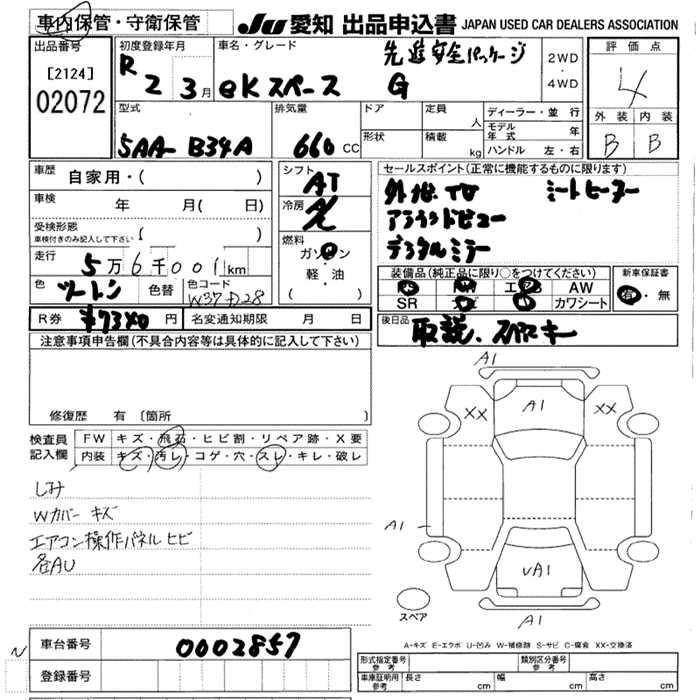 車内保管・守衛保管 JU 愛知 出品申込書 JAPAN USED CAR DEALERS ASSOCIATION
出品番号
[2124]
02072
初度登録年月
R 2 3月
車名・グレード
先進安全パッケージ
eKスペース G
2WD
・
4WD
評価点
4
外装 内装
B B
型式
5AA- B34A
排気量
660 CC
ドア
形状
定員 人
積載 kg
ディーラー・並行
モデル年式 年
ハンドル 左・右
車歴 自家用・( )
車検 年 月( 日)
受検形態
車検付きのみ記入して下さい ( )
走行 5万6千001km
色 ツートン 色替 色コード
W37 D28
R券 ¥7340 円 名変通知期限 月 日
シフト
AT
冷房
燃料
ガソリン
軽・油
( )
セールスポイント(正常に機能するものに限ります)
シートヒーター
アラウンドビュー
デジタルミラー
装備品(純正品に限り○をつけてください)
PS PW エアB AW
SR カワシート
新車保証書
有・無
後日品
取説、スペアキー
注意事項申告欄(不具合内容等は具体的に記入して下さい)
修復歴 有 〔箇所
検査員
記入欄
FW キズ・飛石・ヒビ割・リペア跡・X要
内装 キズ・汚レ・コゲ・穴・スレ・キレ・破レ
しみ
Wカバー キズ
エアコン操作パネルヒビ
各AU
A1
XX A1 XX
A1
VA1
A1
スペア
A-キズ E-エクボ U-凹み W-補修跡 S-サビ C-腐食 XX-交換済
車台番号 0002857
登録番号
N
形式指定番号
参考
類別区分番号
参考
車庫証明用
参考
長さ cm 幅 cm 高さ cm